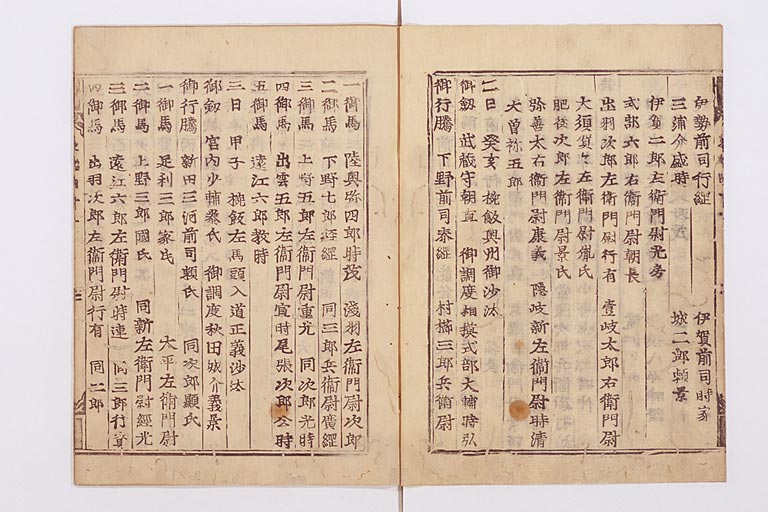 伊勢前司行經 伊賀前司時家
三浦介盛時 城二郎頼景
伊賀二郎左衛門尉光房
式部六郎右衛門尉朝長
出羽次郎左衛門尉行有 壹岐太郎右衛門尉
大須賀左衛門尉胤氏
肥後次郎左衛門尉景氏
弥善太右衛門尉康義 隠岐新左衛門尉時清
大曽祢五郎
二日 癸亥 垸飯奥州御沙汰
御劔 武蔵守朝直 御調度相摸式部大輔時弘
御行騰下野前司泰經 村櫛三郎兵衛尉
一御馬 陸奥弥四郎時茂 淺羽左衛門尉次郎
二御馬下野七郎經綱 同三郎兵衛尉廣經
三御馬上野五郎左衛門尉重光 同次郎光時
四御馬 出雲五郎左衛門尉宣時尾張次郎公時
五御馬 遠江六郎教時
三日 甲子 垸飯左馬頭入道正義沙汰
御劔宮内少輔泰氏 御調度秋田城介義景
御行騰新田三河前司頼氏 同次郎顯氏
一御馬足利三郎家氏 太平左衛門尉
二御馬上野三郎國氏 同新左衛門尉經光
三御馬遠江六郎左衛門尉時連 同三郎行
四御馬 出羽次郎左衛門尉行有 同二郎